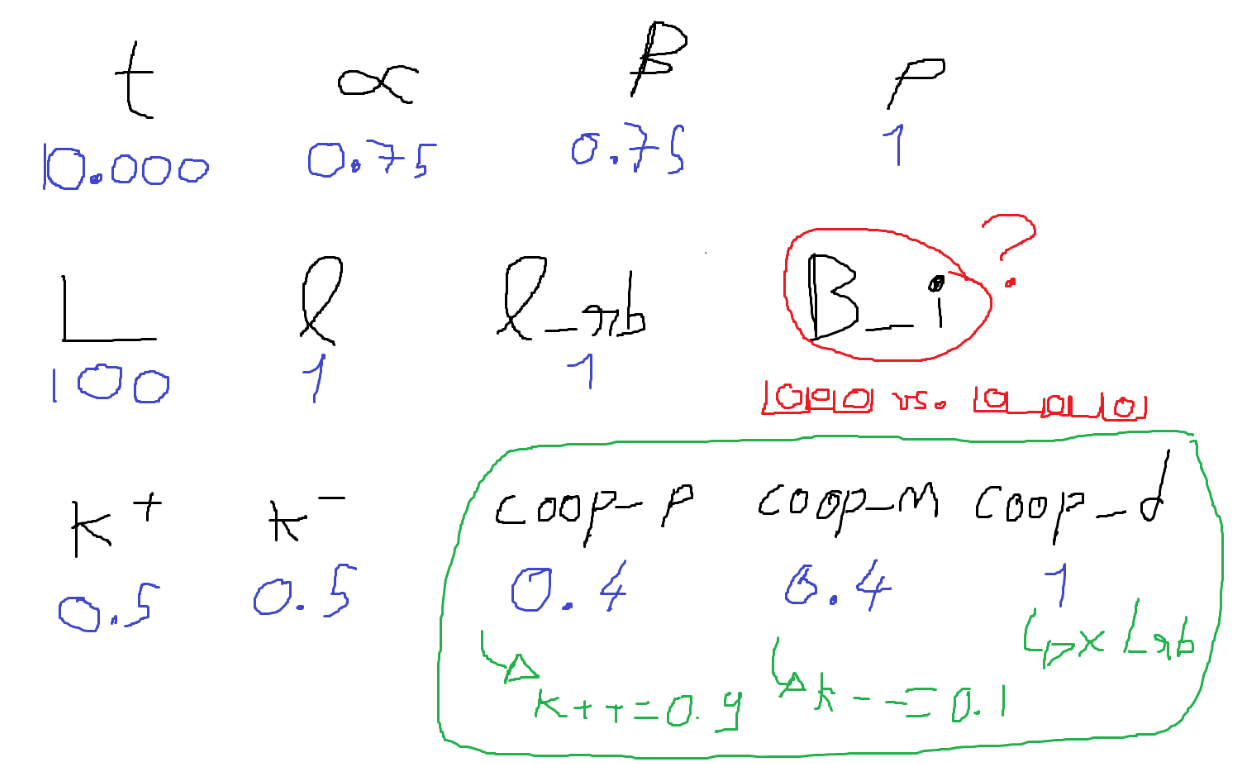 t α β ρ
10.000 0.75 0.75 1
L ℓ ℓ_rb B_i ?
100 1 1
1000 vs. 10_0_10
K+ K- coop_p coop_m coop_d
0.5 0.5 0.4 0.4 1
x Lrb
K++=0.9 k--=0.1